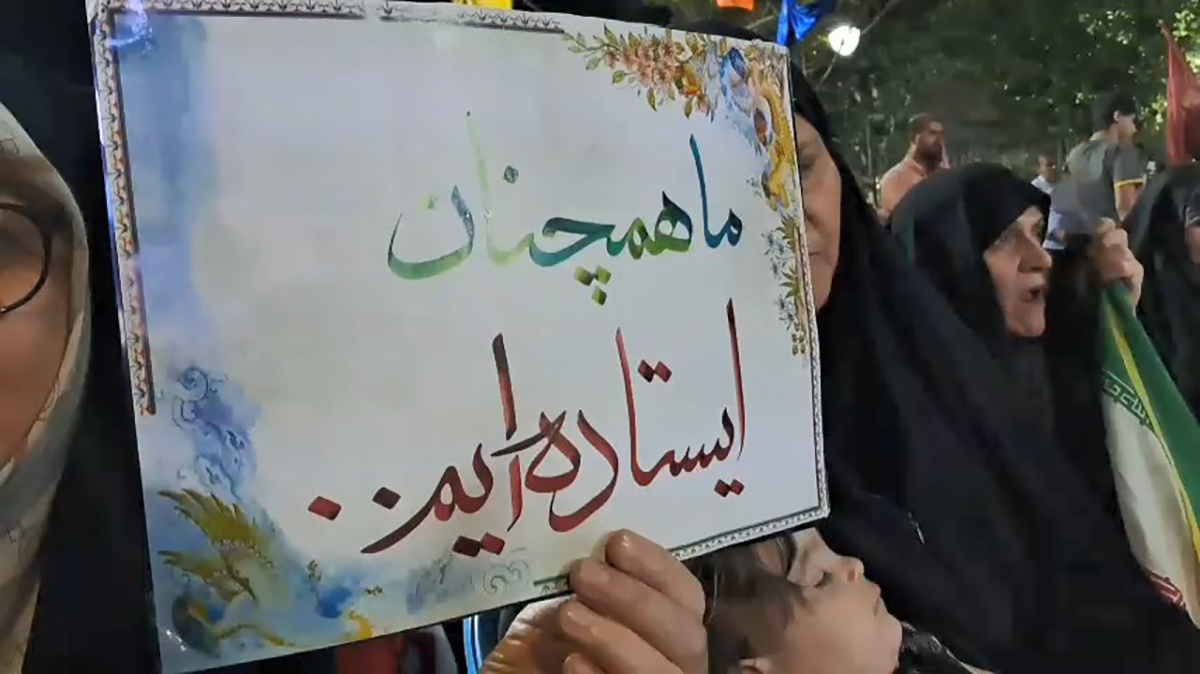 ما همچنان
ایستاده‌ایم..